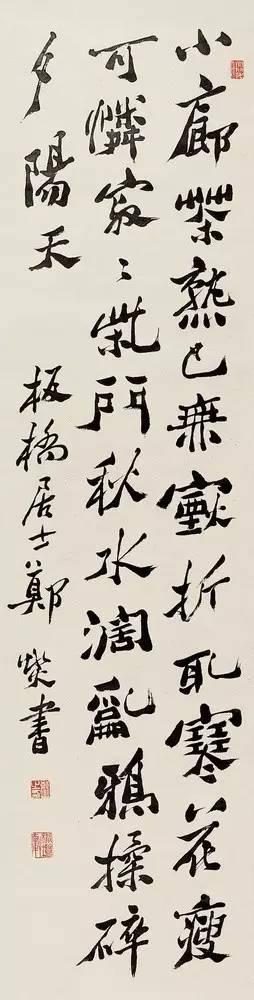 小廊茶熟已無煙折取寒花瘦
可憐寂〻柴門秋水濶亂鴉揉碎
夕陽天 板橋居士鄭燮書